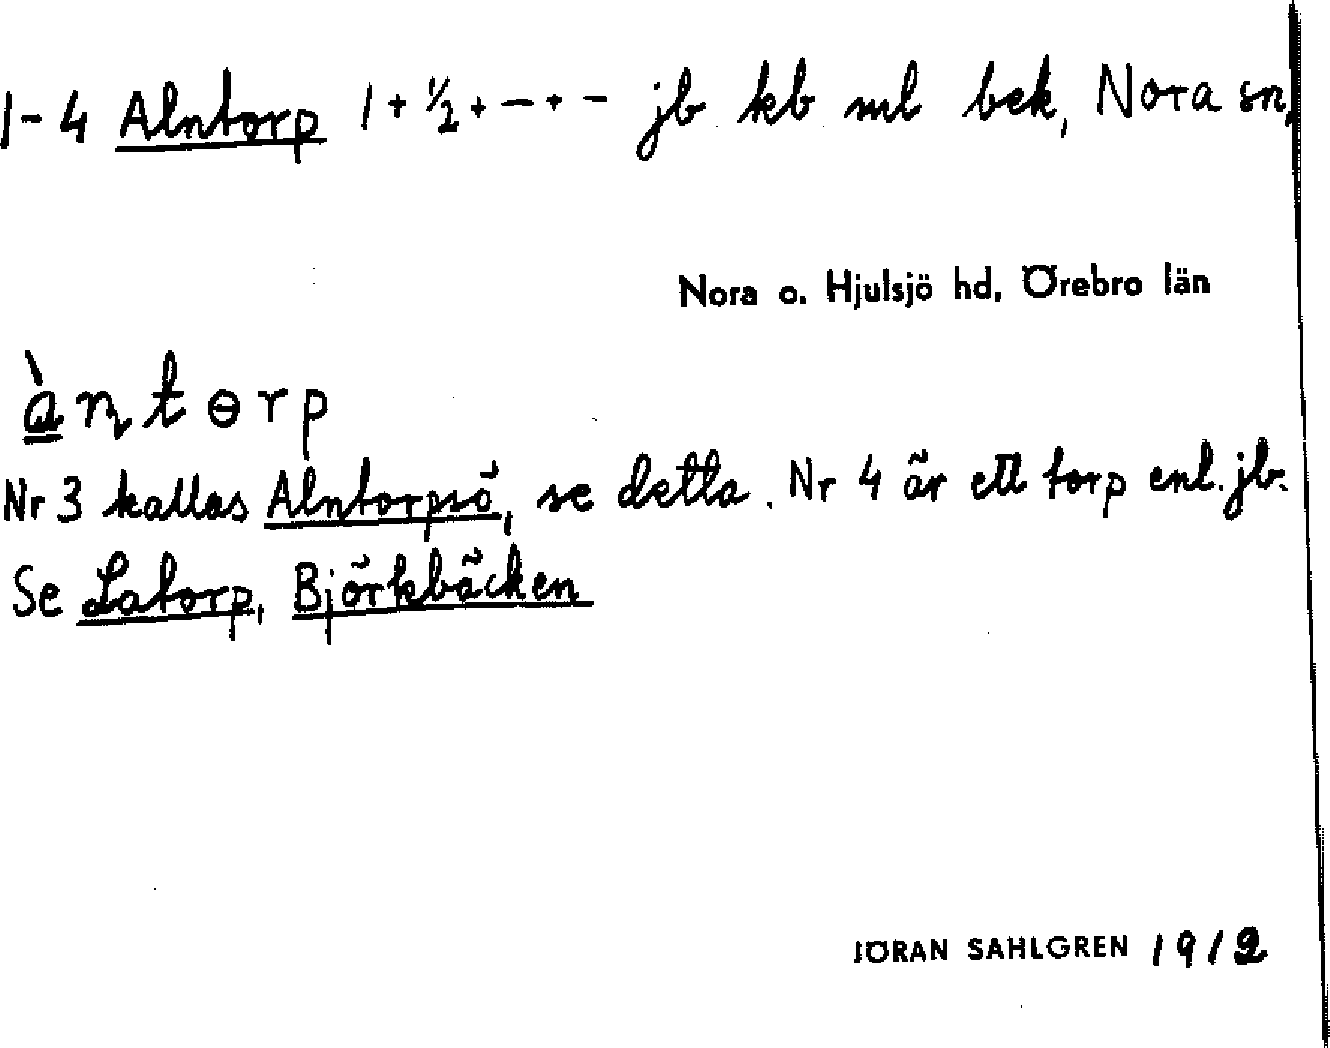 1-4 Alntorp 1 + ½ + — + – jb kb ml bek, Nora sn,
Nora o. Hjulsjö hd, Örebro län
àntɵrp
Nr 3 kallas Alntorpsö, se detta. Nr 4 är ett torp enl. jb.
Se Latorp, Björkbäcken
JÖRAN SAHLGREN 1912